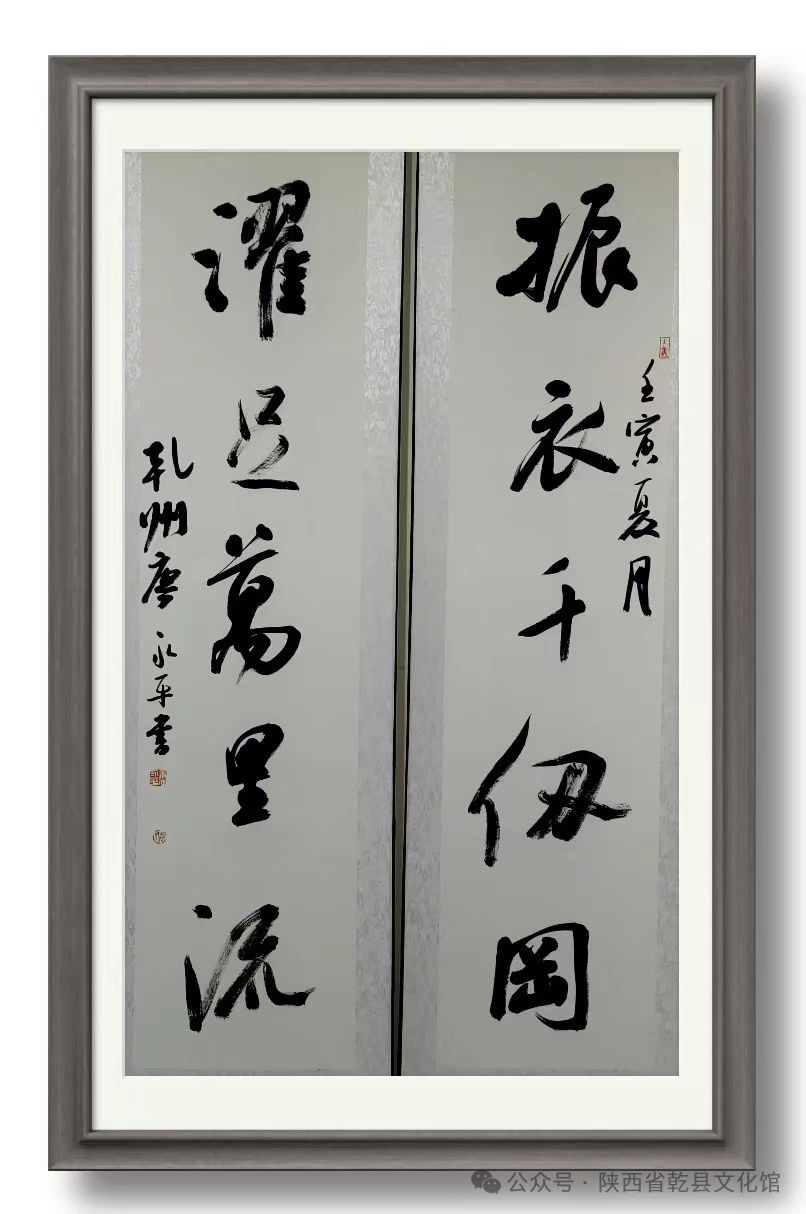 振衣千仞岡
壬寅夏月
濯足萬里流
乾州唐永平書
公众号·陕西省乾县文化馆